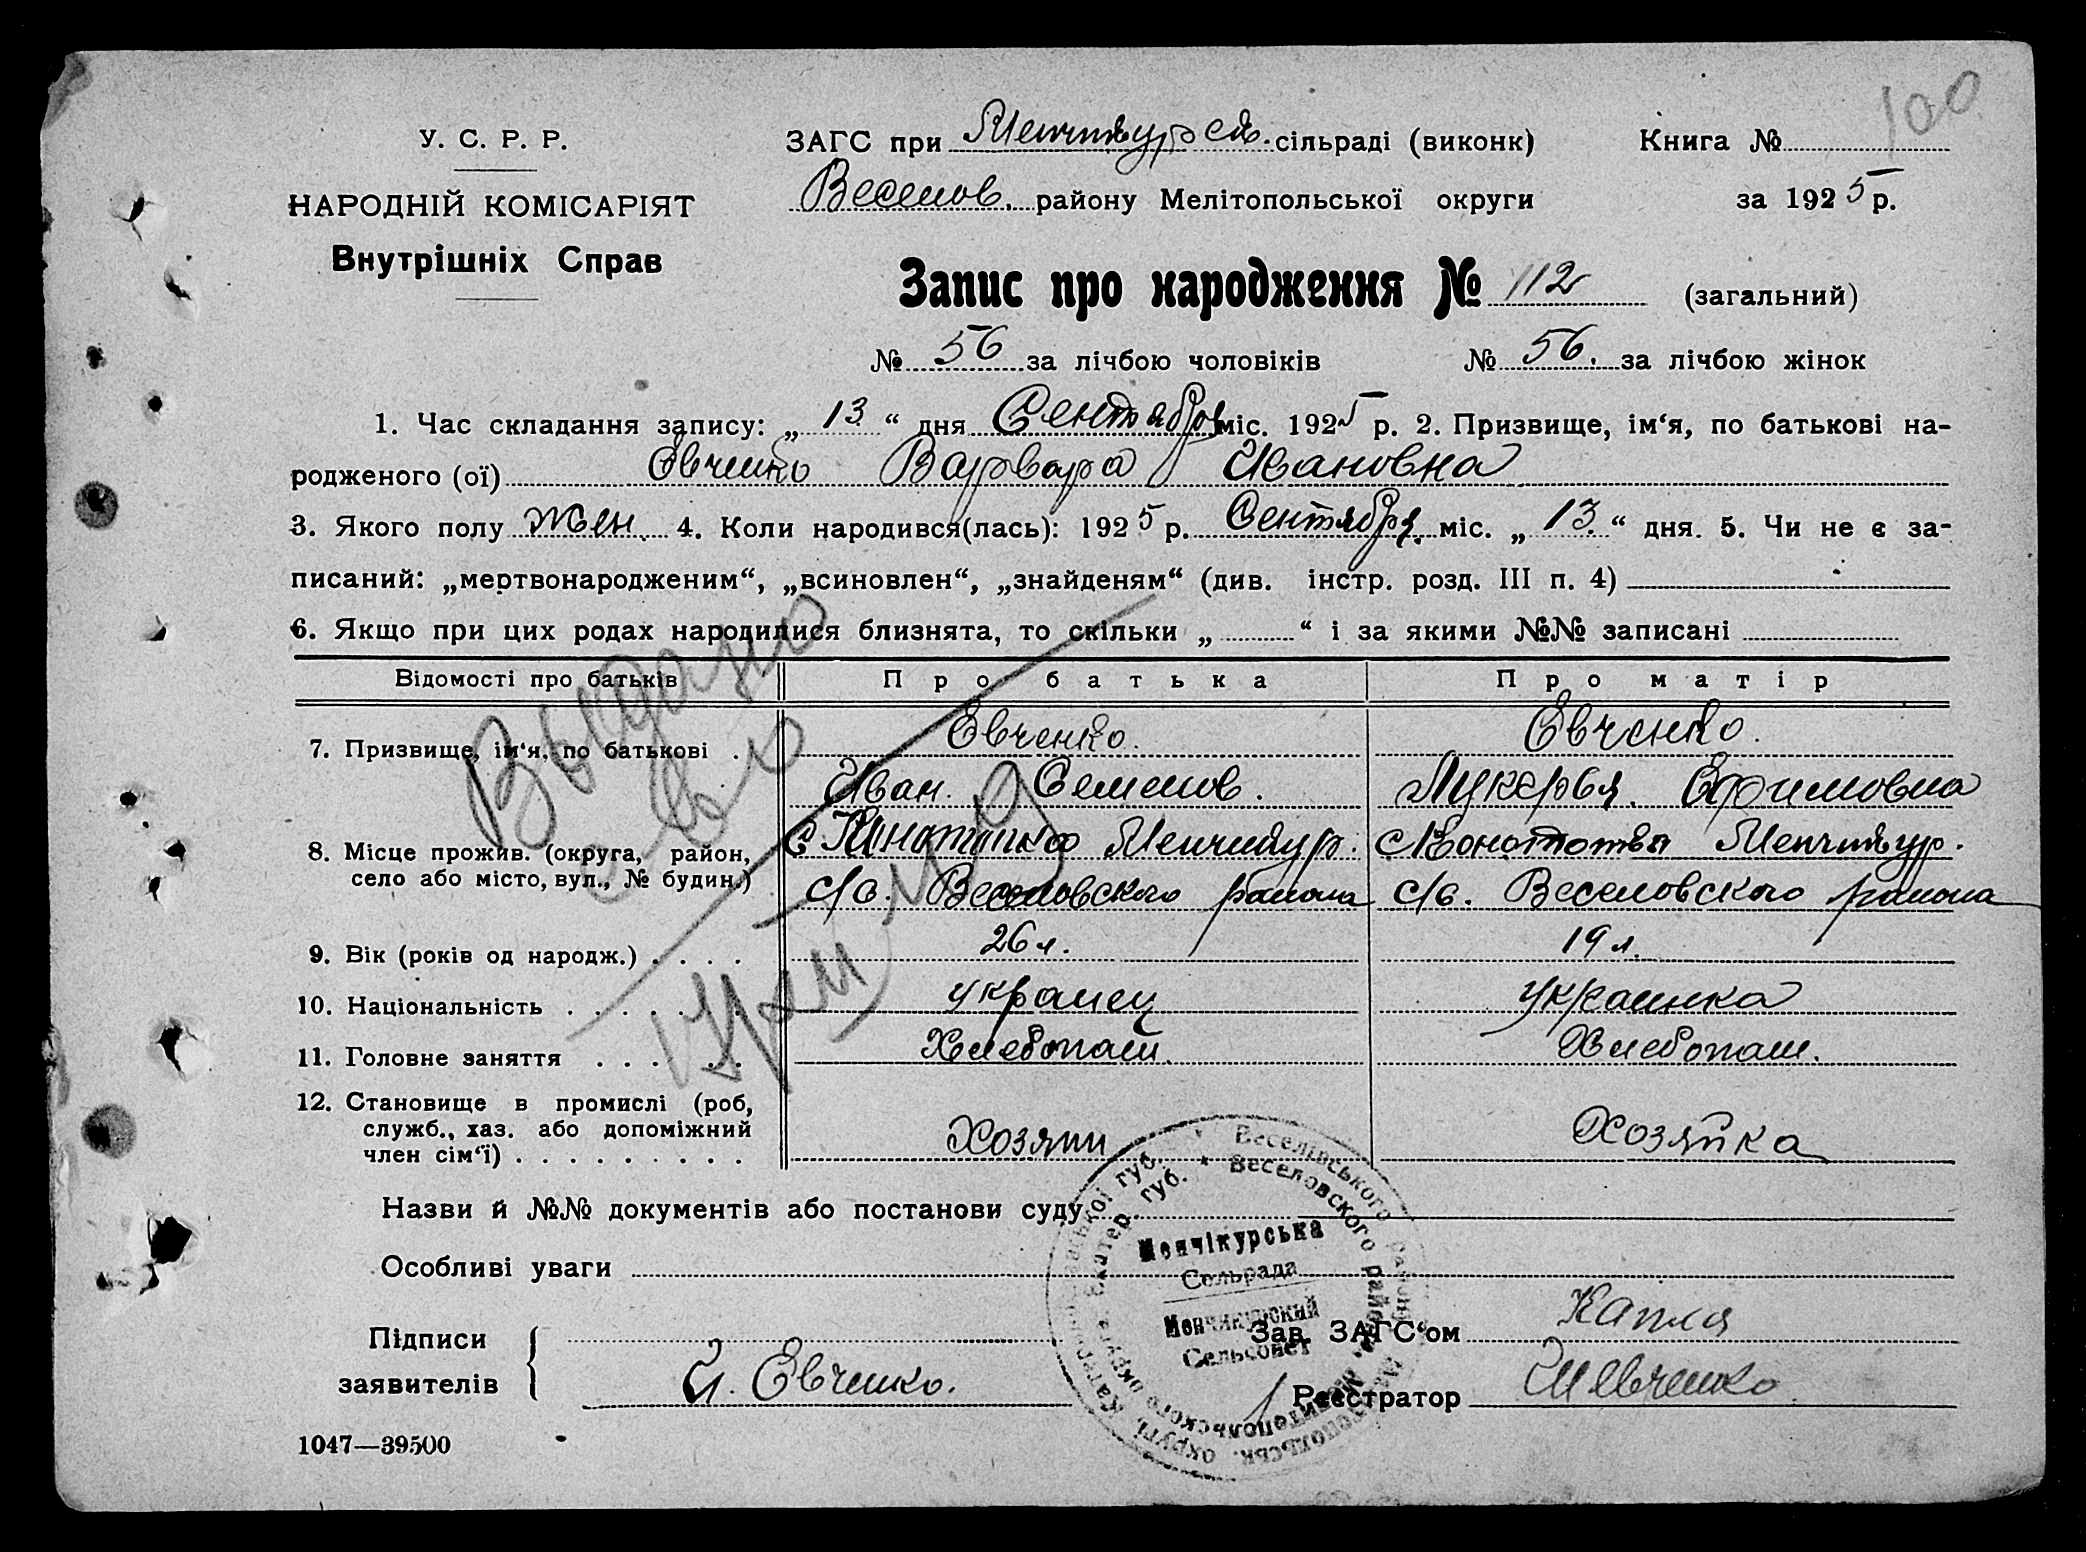 100
У. С. Р. Р.
НАРОДНІЙ КОМІСАРІЯТ
Внутрішніх Справ
ЗАГС при Менчикур ой. сільраді (виконк) Книга №
Веселов. району Мелітопольської округи за 1925 р.
Запис про народження № 112 (загальний)
№ 56 за лічбою чоловіків № 56. за лічбою жінок
1. Час складання запису: „ 13 “ дня Сентября міс. 1925 р. 2. Призвище, ім‘я, по батькові на-
родженого (ої) Евченко Варвара Ивановна
3. Якого полу жен. 4. Коли народився(лась): 1925 р. Сентября міс. „ 13 “ дня. 5. Чи не є за-
писаний: „мертвонародженим“, „всиновлен“, „знайденям“ (див. інстр. розд. III п. 4)
6. Якщо при цих родах народилися близнята, то скільки „ “ і за якими №№ записані
Відомості про батьків Про батька Про матір
7. Призвище, ім‘я, по батькові . Евченко. Евченко.
Иван. Семенов. Лукерья. Ефимовна
8. Місце прожив. (округа, район, Менчикур. Менчикур.
село або місто, вул., № будин.) с/с. Веселовского района с/с. Веселовского района
9. Вік (років од народж.) . . . . 26 л. 19 л.
10. Національність . . . . . . украинец украинка
11. Головне заняття . . . . . . Хлебопаш. Хлебопаш.
12. Становище в промислі (роб,
служб., хаз. або допоміжний
член сім‘ї) . . . . . . . . . Хозяин Хозяйка
Выдано
Назви й №№ документів або постанови суду
Особливі уваги
Менчікурська
Сельрада
Менчикурский
Сельсовет
Веселівського району
Веселовского района, Мелитопольского округа Екатер. губ.
Підписи
заявителів И. Евченко.
Зав. ЗАГС‘ом Капля
Реєстратор Шевченко
1047—39500